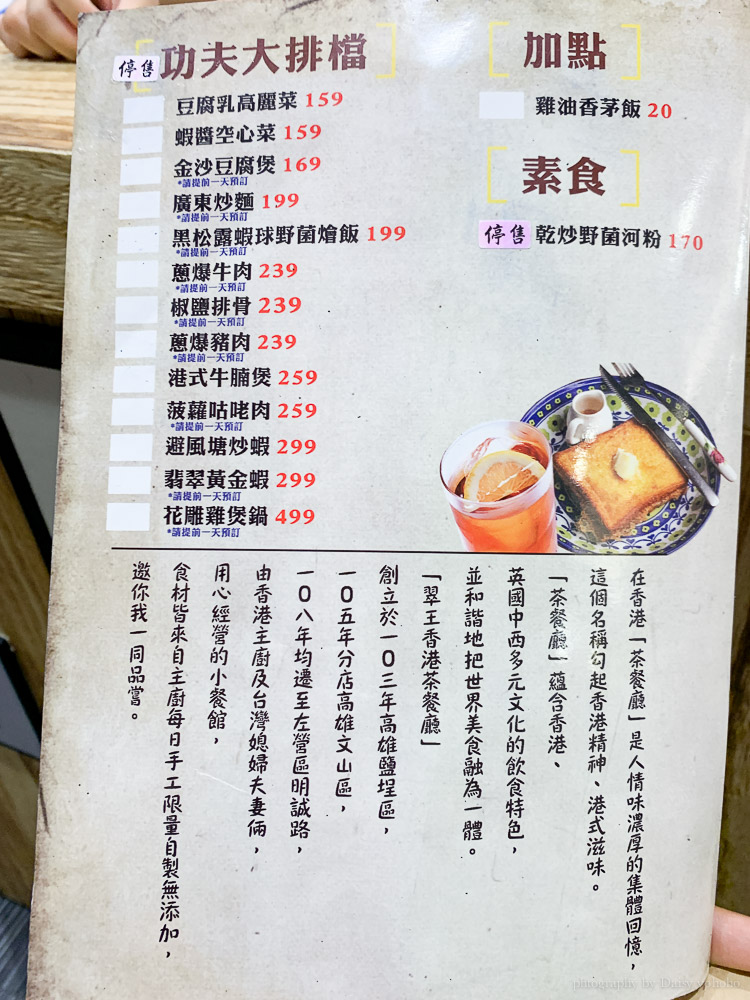 停售 功夫大排檔
豆腐乳高麗菜 159
蝦醬空心菜 159
金沙豆腐煲 169
*請提前一天預訂
廣東炒麵 199
*請提前一天預訂
黑松露蝦球野菌燴飯 199
*請提前一天預訂
蔥爆牛肉 239
*請提前一天預訂
椒鹽排骨 239
*請提前一天預訂
蔥爆豬肉 239
*請提前一天預訂
港式牛腩煲 259
菠蘿咕咾肉 259
*請提前一天預訂
避風塘炒蝦 299
翡翠黃金蝦 299
*請提前一天預訂
花雕雞煲鍋 499
*請提前一天預訂
加點
雞油香茅飯 20
素食
停售 乾炒野菌河粉 170
在香港「茶餐廳」是人情味濃厚的集體回憶，
這個名稱勾起香港精神、港式滋味。
「茶餐廳」蘊含香港、
英國中西多元文化的飲食特色，
並和諧地把世界美食融為一體。
「翠王香港茶餐廳」
創立於一〇三年高雄鹽埕區，
一〇五年分店高雄文山區，
一〇八年均遷至左營區明誠路，
由香港主廚及台灣媳婦夫妻倆，
用心經營的小餐館，
食材皆來自主廚每日手工限量自製無添加，
邀你我一同品嘗。